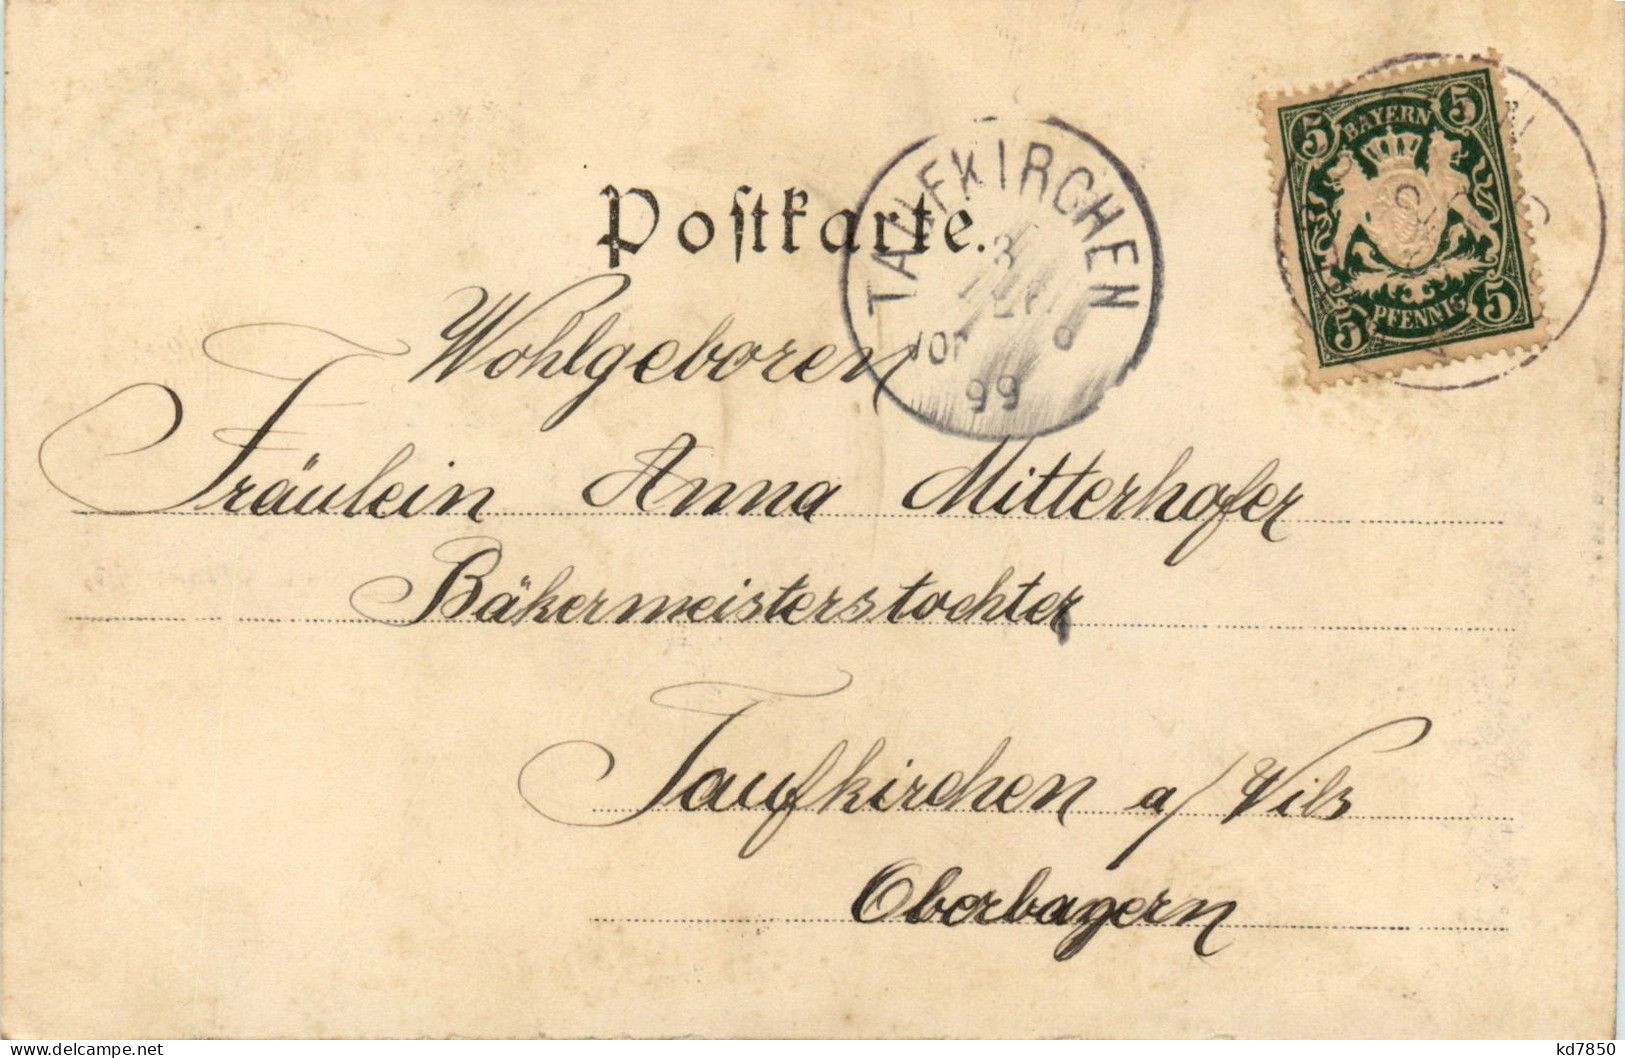 5 BAYERN 5
5 PFENNIG 5
TAUFKIRCHEN
3
VOR
99
Postkarte.
Wohlgeboren
Fräulein Anna Mitterhofer
Bäkermeisterstochter
Taufkirchen a/ Vils
Oberbayern
kd7850